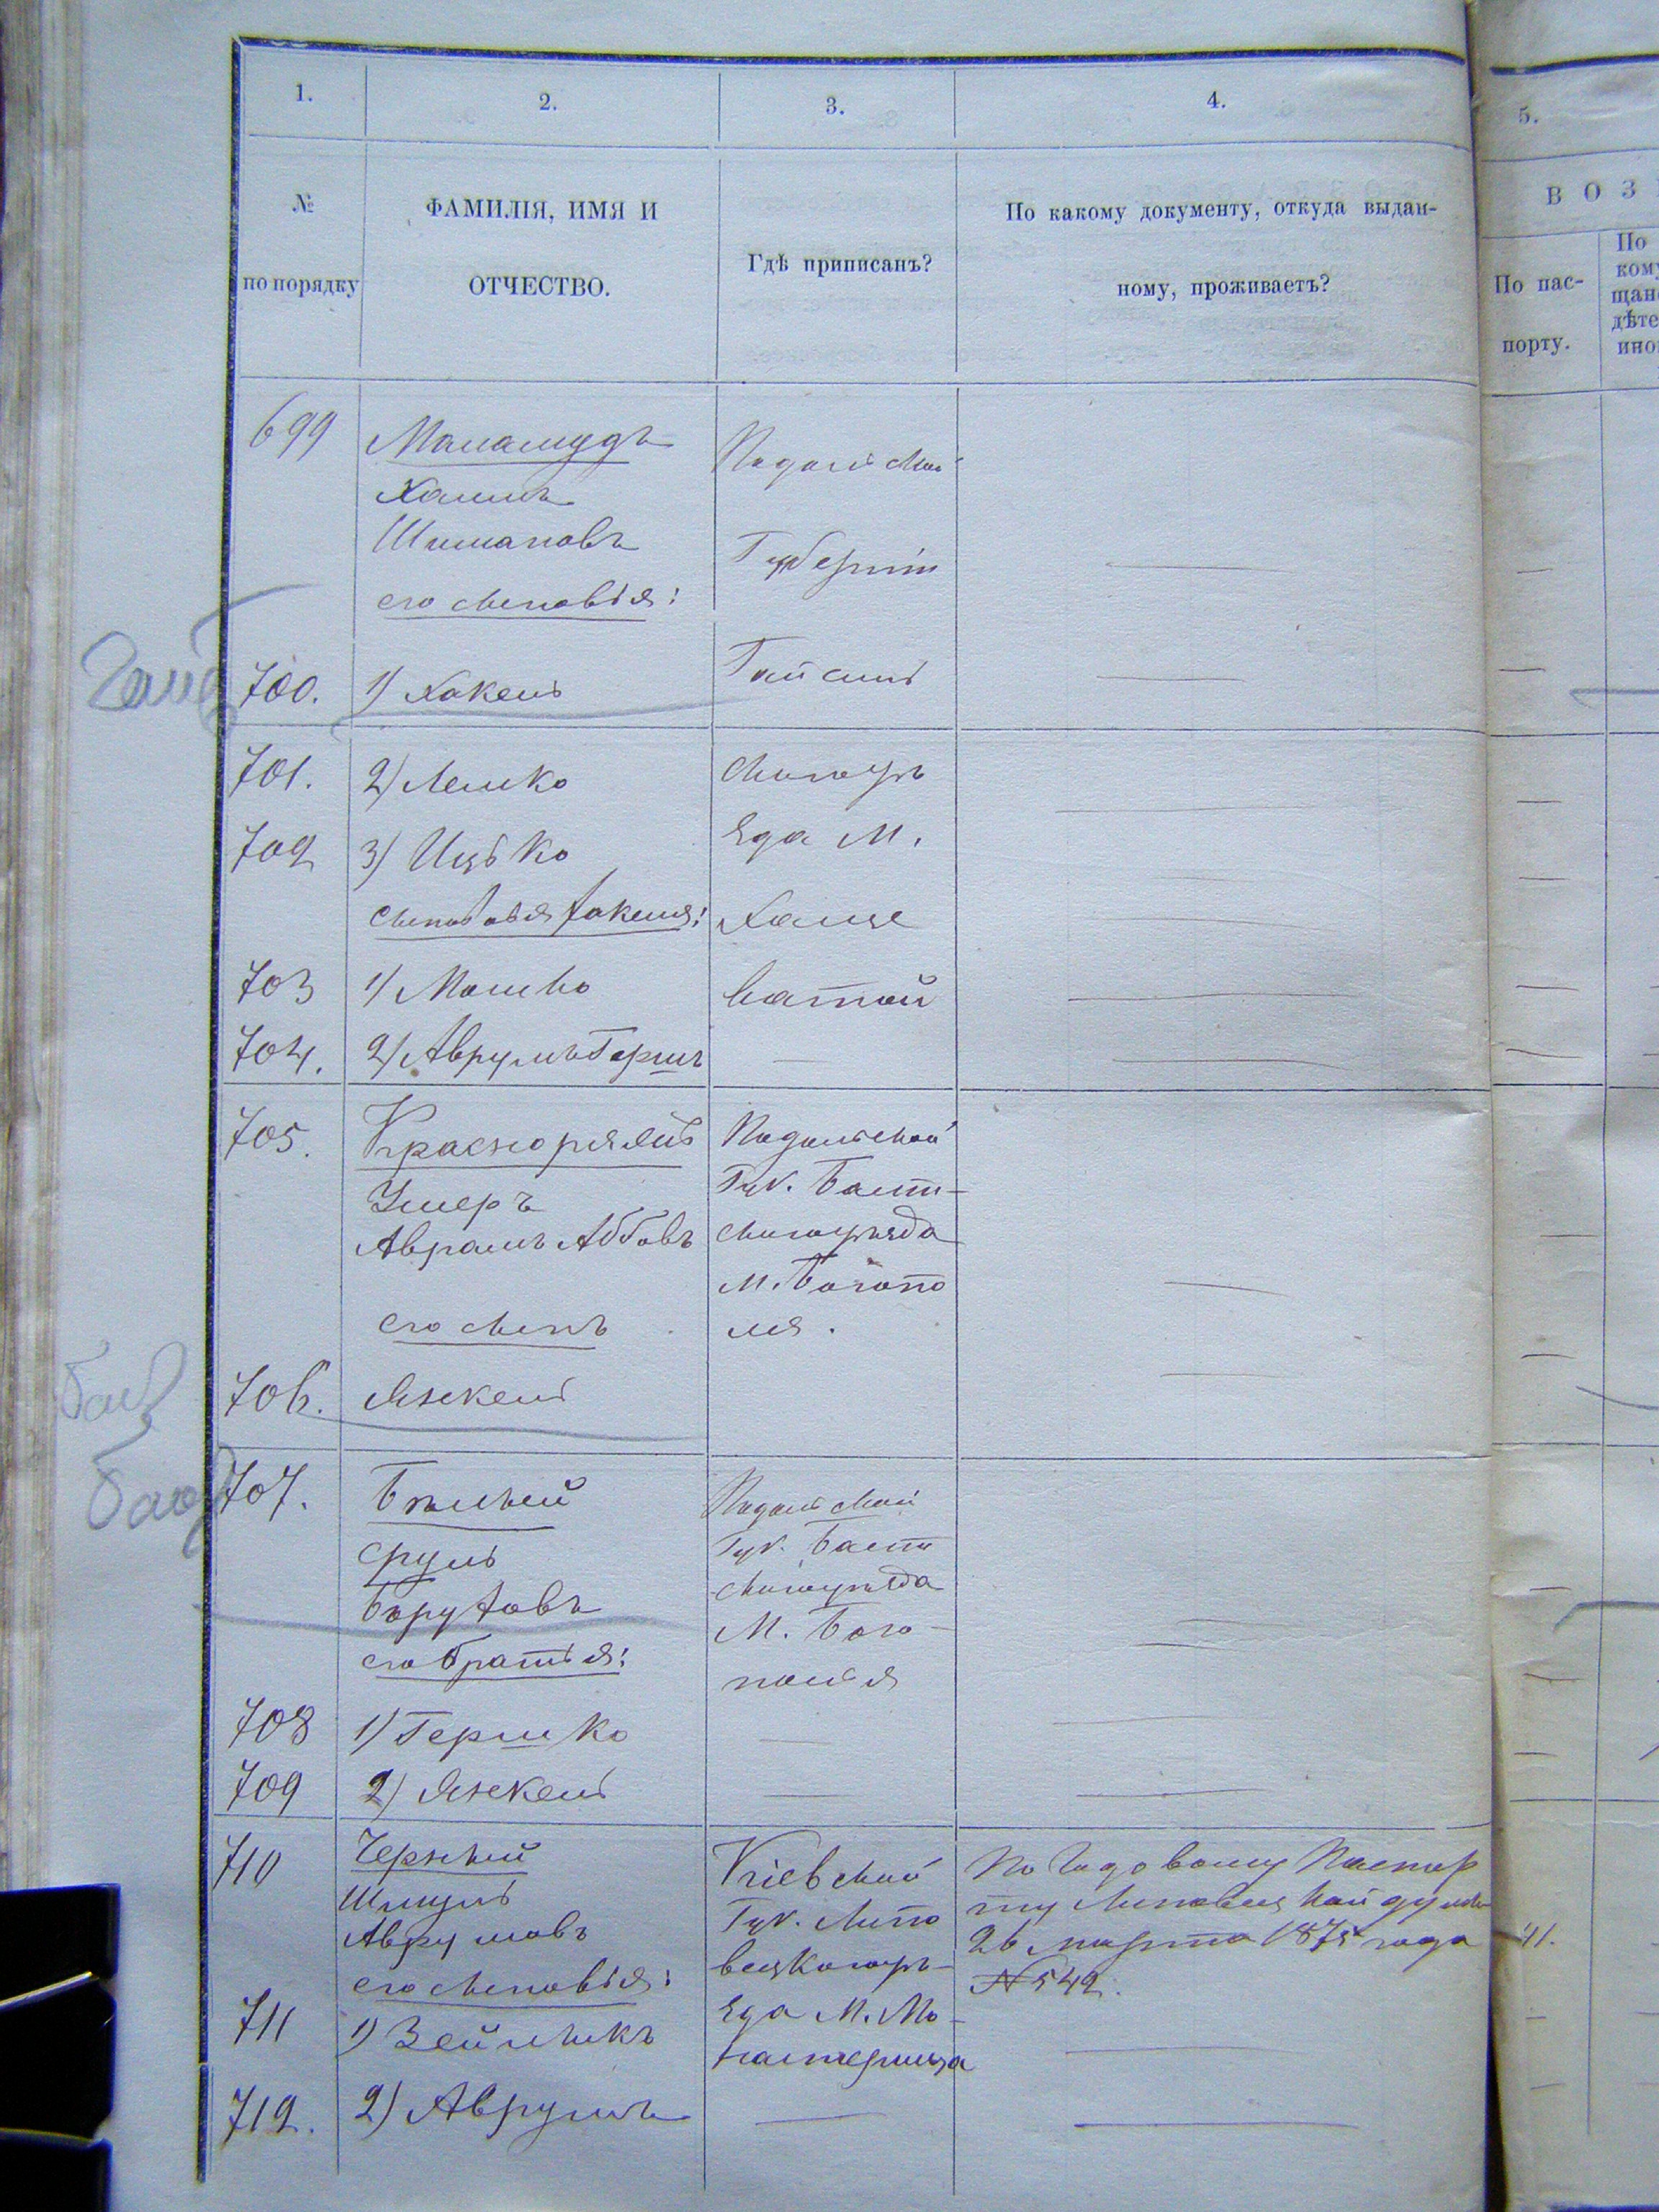 1.
2.
3.
4.
5.
№
по порядку
ФАМИЛІЯ, ИМЯ И
ОТЧЕСТВО.
Гдѣ приписанъ?
По какому документу, откуда выдан-
ному, проживаетъ?
В О З
По пас-
порту.
По
ком
щан
дѣте
ино
699
Маламудъ
Хаимъ
Шимановъ
его сыновья:
Подольской
Губерніи
700.
1) Хакель
Гайсин
701.
2) Лейко
скагоуѣ
702
3) Ицько
Езда М.
сыновья Хакеля:
Хаще
703
1) Мошко
ватой
704.
2) Аврумъ Гершъ
705.
Умеръ
Аврамъ Аббовъ
его сынъ
Подольской
Губ. Балт-
скагоуѣзда
М. Богопо
ля.
706.
Янкель
707.
Бѣлый
Сруль
Боруховъ
его братья:
Подольской
Губ. Балт
скагоуѣзда
М. Бого-
полья
708
1) Гершко
709
2) Янкель
710
Черный
Шмуль
Аврумовъ
его сыновья:
Кіевской
Губ. Липо
вецкагоуѣ-
зда М. Мо-
настырища
По годовому Паспор
ту Липовецкой думы
26 марта 1875 года
№ 542.
41.
711
1) Зейликъ
712.
2) Аврумъ